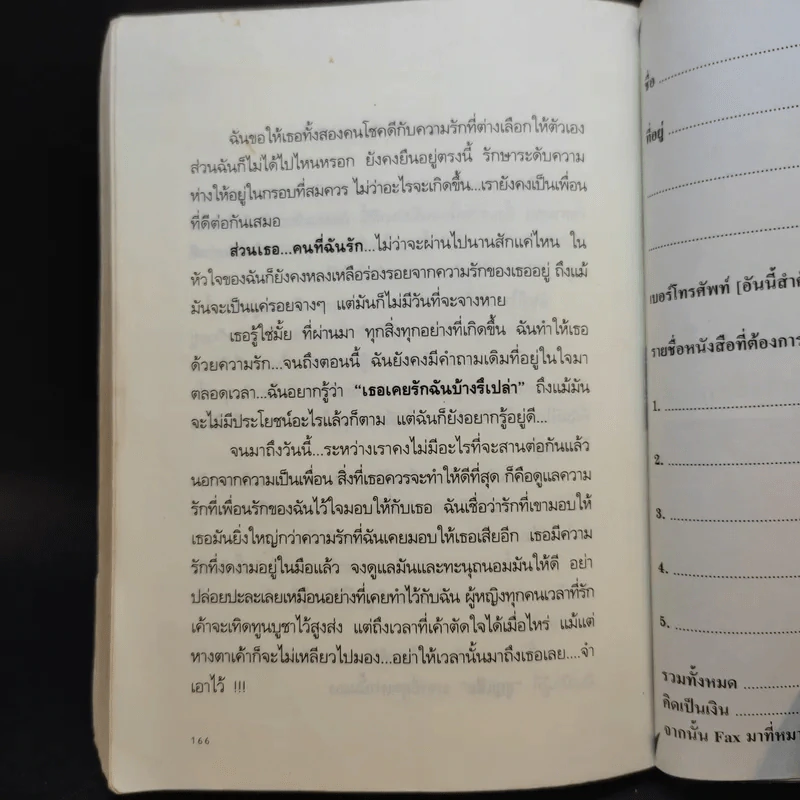 ฉันขอให้เธอทั้งสองคนโชคดีกับความรักที่ต่างเลือกให้ตัวเอง
ส่วนฉันก็ไม่ได้ไปไหนหรอก ยังคงยืนอยู่ตรงนี้ รักษาระดับความ
ห่างให้อยู่ในกรอบที่สมควร ไม่ว่าอะไรจะเกิดขึ้น...เรายังคงเป็นเพื่อน
ที่ดีต่อกันเสมอ
ส่วนเธอ...คนที่ฉันรัก...ไม่ว่าจะผ่านไปนานสักแค่ไหน ใน
หัวใจของฉันก็ยังคงหลงเหลือร่องรอยจากความรักของเธออยู่ ถึงแม้
มันจะเป็นแค่รอยจางๆ แต่มันก็ไม่มีวันที่จะจางหาย
เธอรู้ใช่มั้ย ที่ผ่านมา ทุกสิ่งทุกอย่างที่เกิดขึ้น ฉันทำให้เธอ
ด้วยความรัก...จนถึงตอนนี้ ฉันยังคงมีคำถามเดิมที่อยู่ในใจมา
ตลอดเวลา...ฉันอยากรู้ว่า “เธอเคยรักฉันบ้างรึเปล่า” ถึงแม้มัน
จะไม่มีประโยชน์อะไรแล้วก็ตาม แต่ฉันก็ยังอยากรู้อยู่ดี...
จนมาถึงวันนี้...ระหว่างเราคงไม่มีอะไรที่จะสานต่อกันแล้ว
นอกจากความเป็นเพื่อน สิ่งที่เธอควรจะทำให้ดีที่สุด ก็คือดูแลความ
รักที่เพื่อนรักของฉันไว้ใจมอบให้กับเธอ ฉันเชื่อว่ารักที่เขามอบให้
เธอมันยิ่งใหญ่กว่าความรักที่ฉันเคยมอบให้เธอเสียอีก เธอมีความ
รักที่งดงามอยู่ในมือแล้ว จงดูแลมันและทะนุถนอมมันให้ดี อย่า
ปล่อยปะละเลยเหมือนอย่างที่เคยทำไว้กับฉัน ผู้หญิงทุกคนเวลาที่รัก
เค้าจะเทิดทูนบูชาไว้สูงส่ง แต่ถึงเวลาที่เค้าตัดใจได้เมื่อไหร่ แม้แต่
หางตาเค้าก็จะไม่เหลียวไปมอง...อย่าให้เวลานั้นมาถึงเธอเลย....จำ
เอาไว้ !!!
166
ชื่อ
ที่อยู่
เบอร์โทรศัพท์ [อันนี้สำคั
รายชื่อหนังสือที่ต้องการ
1.
2.
3.
4.
5.
รวมทั้งหมด
คิดเป็นเงิน
จากนั้น Fax มาที่หมา